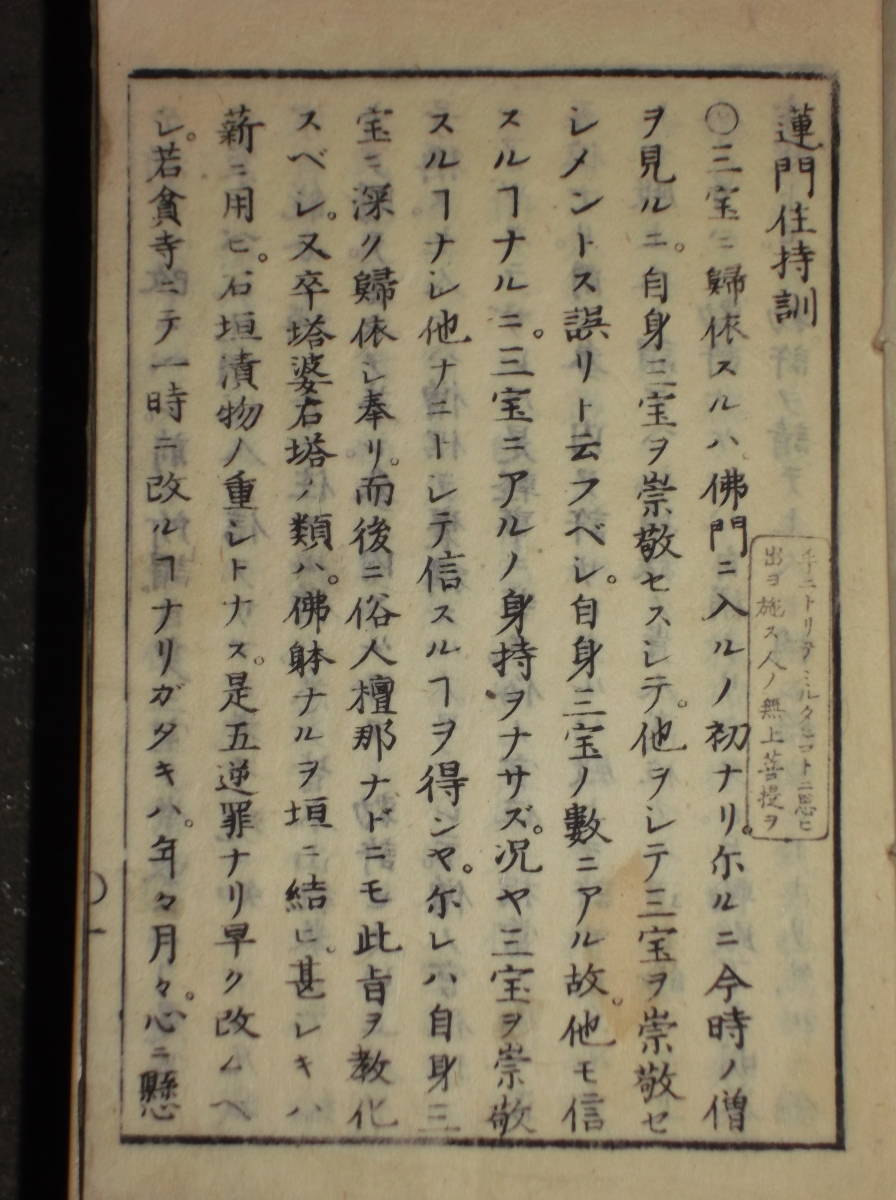 蓮門住持訓
手ニトリテミルタビゴトニ思ヒ
出ヨ施ス人ノ無上菩提ヲ
〇三宝ニ歸依スルハ佛門ニ入ルノ初ナリ。尓ルニ今時ノ僧
ヲ見ルニ。自身三宝ヲ崇敬セスシテ。他ヲシテ三宝ヲ崇敬セ
シメントス誤リト云フベシ。自身三宝ノ數ニアル故。他モ信
スルヿナルニ。三宝ニアルノ身持ヲナサズ。况ヤ三宝ヲ崇敬
スルヿナシ他ナニトシテ信スルヿヲ得ンヤ。尓レハ自身三
宝ニ深ク歸依シ奉リ。而後ニ俗人檀那ナドニモ此旨ヲ教化
スベシ。又卒塔婆石塔ノ類ハ。佛躰ナルヲ垣ニ結ヒ。甚シキハ
薪ニ用ヒ。石垣漬物ノ重シトナス。是五逆罪ナリ早ク改ムベ
シ。若貧寺ニテ一時ニ改ルヿナリガタキハ。年々月々。心ニ懸